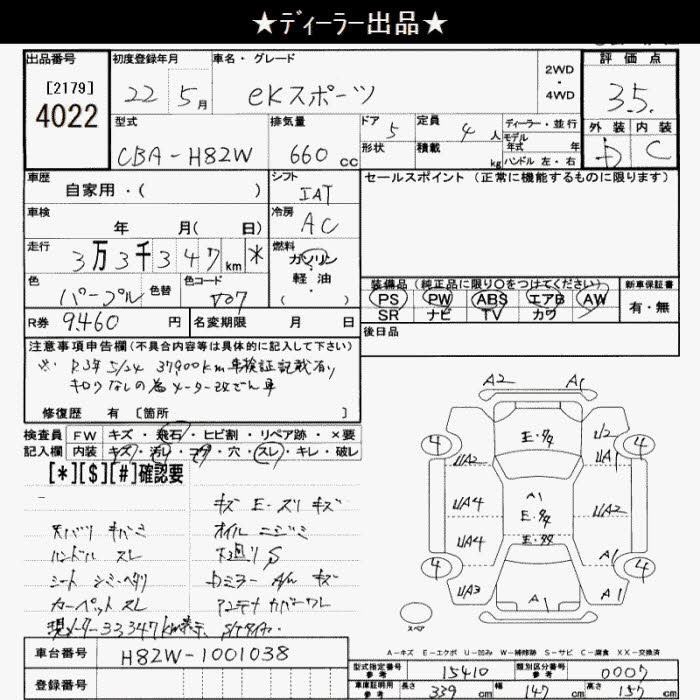 ★ディーラー出品★
出品番号 初度登録年月 車名・グレード 2WD・4WD 評価点
[2179] 4022 22 5月 eKスポーツ 3.5.
型式 排気量 ドア 5 定員 4人 ディーラー・並行 外装 内装
CBA-H82W 660cc 形状 積載 kg モデル年式 年 ハンドル 左・右 D C
車歴 自家用・( ) シフト IAT セールスポイント (正常に機能するものに限ります)
車検 年 月( 日) 冷房 AC
走行 3万3千347km * 燃料 ガソリン・軽油・( )
色 パープル 色替 色コード 装備品 (純正品に限り○をつけてください) 新車保証書
PS PW ABS エアB AW 有・無
SR ナビ TV カワ
R券 9460円 名変期限 月 日 後日品
注意事項申告欄(不具合内容等は具体的に記入して下さい)
※ R3年 5/24 37,900km 車検証記載有り
キロクなしの為メーター改ざん車
修復歴 有 [箇所 ]
検査員 FW キズ・飛石・ヒビ割・リペア跡・×要
記入欄 内装 キズ・汚レ・コゲ・穴・スレ・キレ・破レ
[*][$][#]確認要
キズ E・ズリ キズ
オイル ニジミ
ハンドル スレ 下廻り S
シート シミ・ヘタリ Dミラー A/w キズ
カーペット スレ アンテナ カバーワレ
現メーター33,347km表示
A2 A1
4 E・ 4
U2 UA2 UA1
UA4 A1 E・ UA2
UA4 E・
4 A1 4
UA3 A1
スペア
A-キズ E-エクボ U-凹み W-補修跡 S-サビ C-腐食 XX-交換済
車台番号 H82W-1001038
登録番号
型式指定番号参考 15410 類別区分番号参考 0007
車庫証明用参考 長さ 339cm 幅 147cm 高さ 157cm